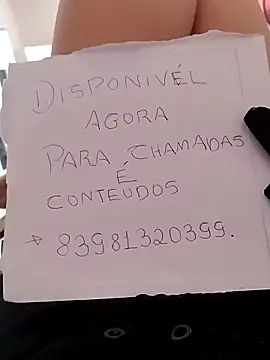 DISPONIVÉL
AGORA
PARA CHAMADAS
É
CONTEÚDOS
→ 83981320399.